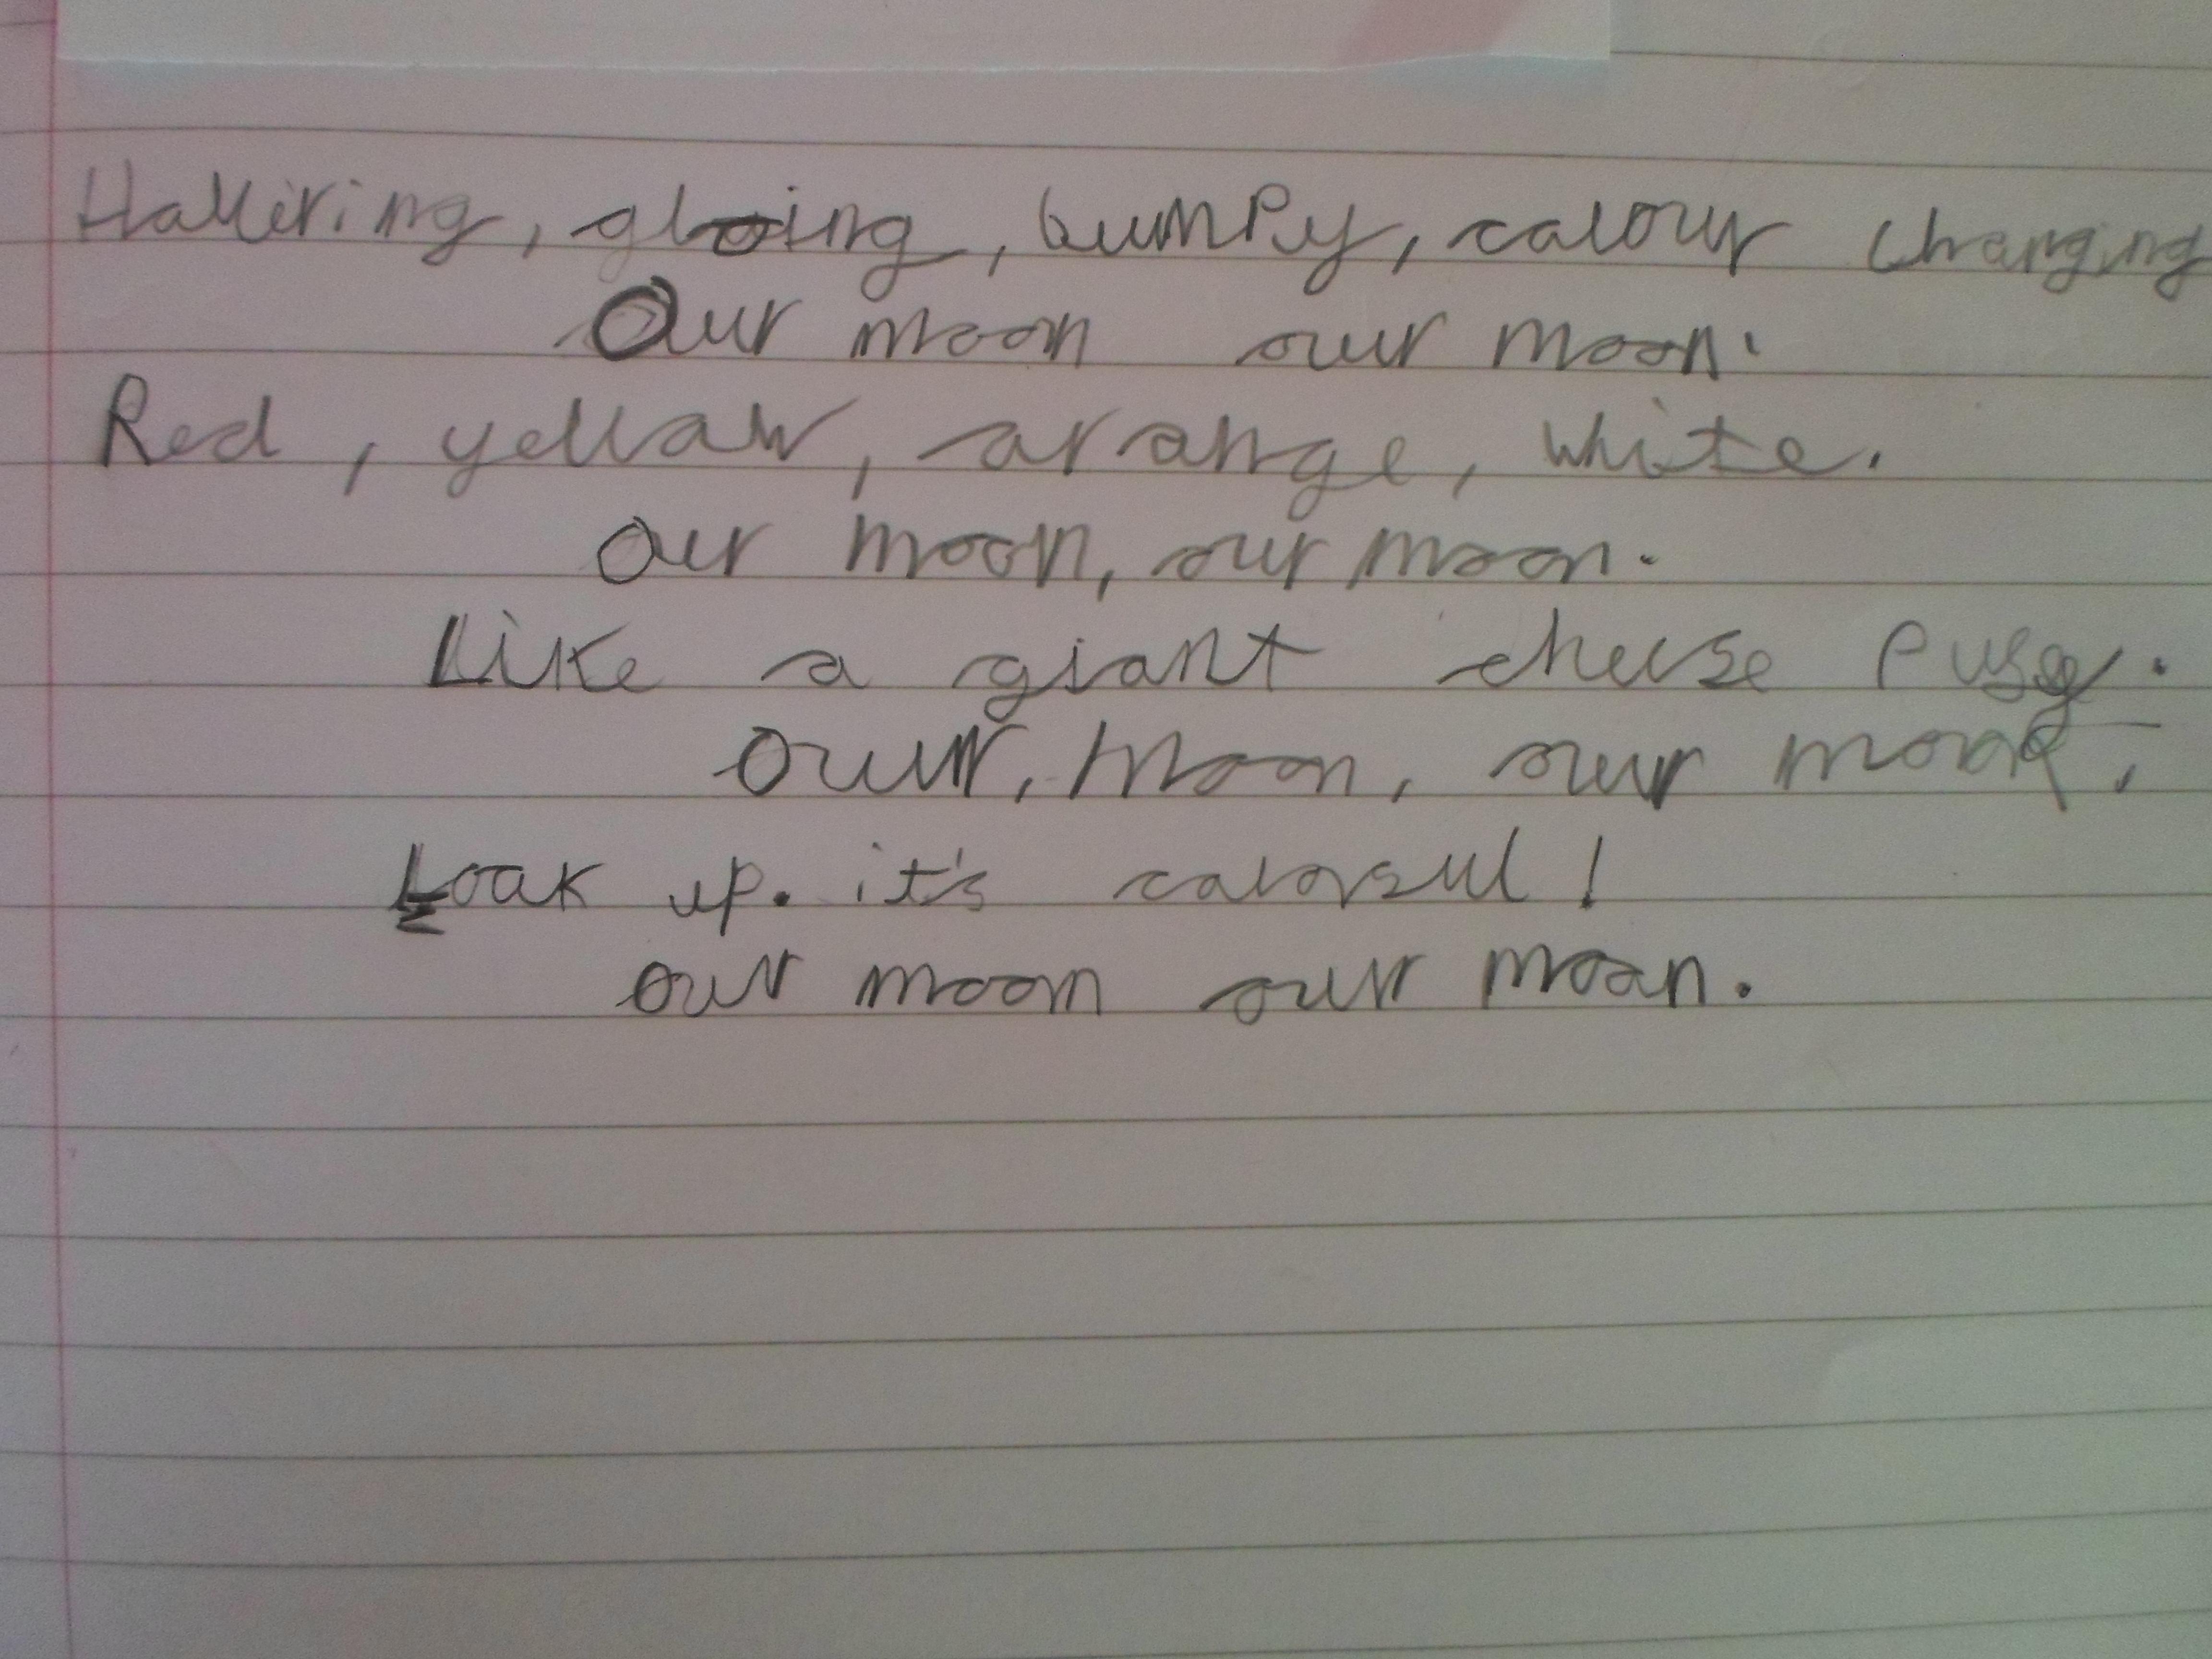 Hallering, gloing, bumpy, colour changing
Our moon our moon.
Red, yellow, orange, white.
Our moon, our moon.
Like a giant cheese
Our, moon, our moon,
Look up. it's colorful!
our moon our moon.